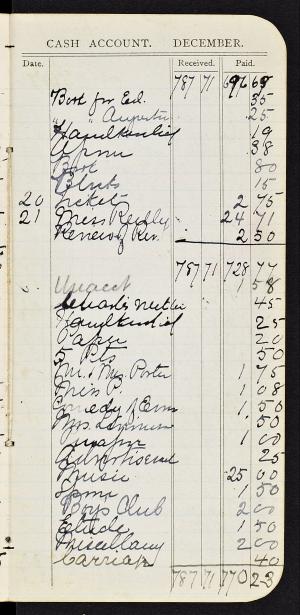 CASH ACCOUNT. DECEMBER.
Date. Received. Paid.
787 71 696 69
Book for Ed. 35
" " 25
Handkerchief 19
Apron 38
Book 80
15
20 Tickets 2 75
21 Miss Reilly 24 71
Renew 2 50
787 71 728 77
Unacct 1 58
45
Handkerchief 25
Paper 20
5 Pts 50
Mr. & Mrs. Porter 1 75
Miss P. 1 08
Comedy of 1 50
Mrs. 50
1 00
Advertisement 25
Music 25 00
1 50
Boys Club 2 00
1 50
Miscellany 2 00
Carriage 40
787 71 770 23